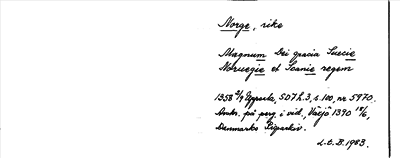 Norge, rike
Magnum Dei gracia Suecie
Norwegie et Scanie regem
1358 4/9 Uppsala, SD 7 h.3, s. 100, nr 5970.
Avskr. på perg. i vid., Växjö 1370 18/6,
Danmarks Rigsarkiv.
L.O.B. 1983.